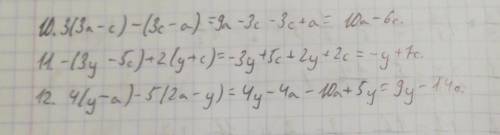 10. 3(3a-c)-(3c-a)=9a-3c-3c+a=10a-6c.
11 -(3y-5c)+2(y+c)=-3y+5c+2y+2c=-y+7c.
12. 4(y-a)-5(2a-y)=4y-4a-10a+5y=9y-14a.